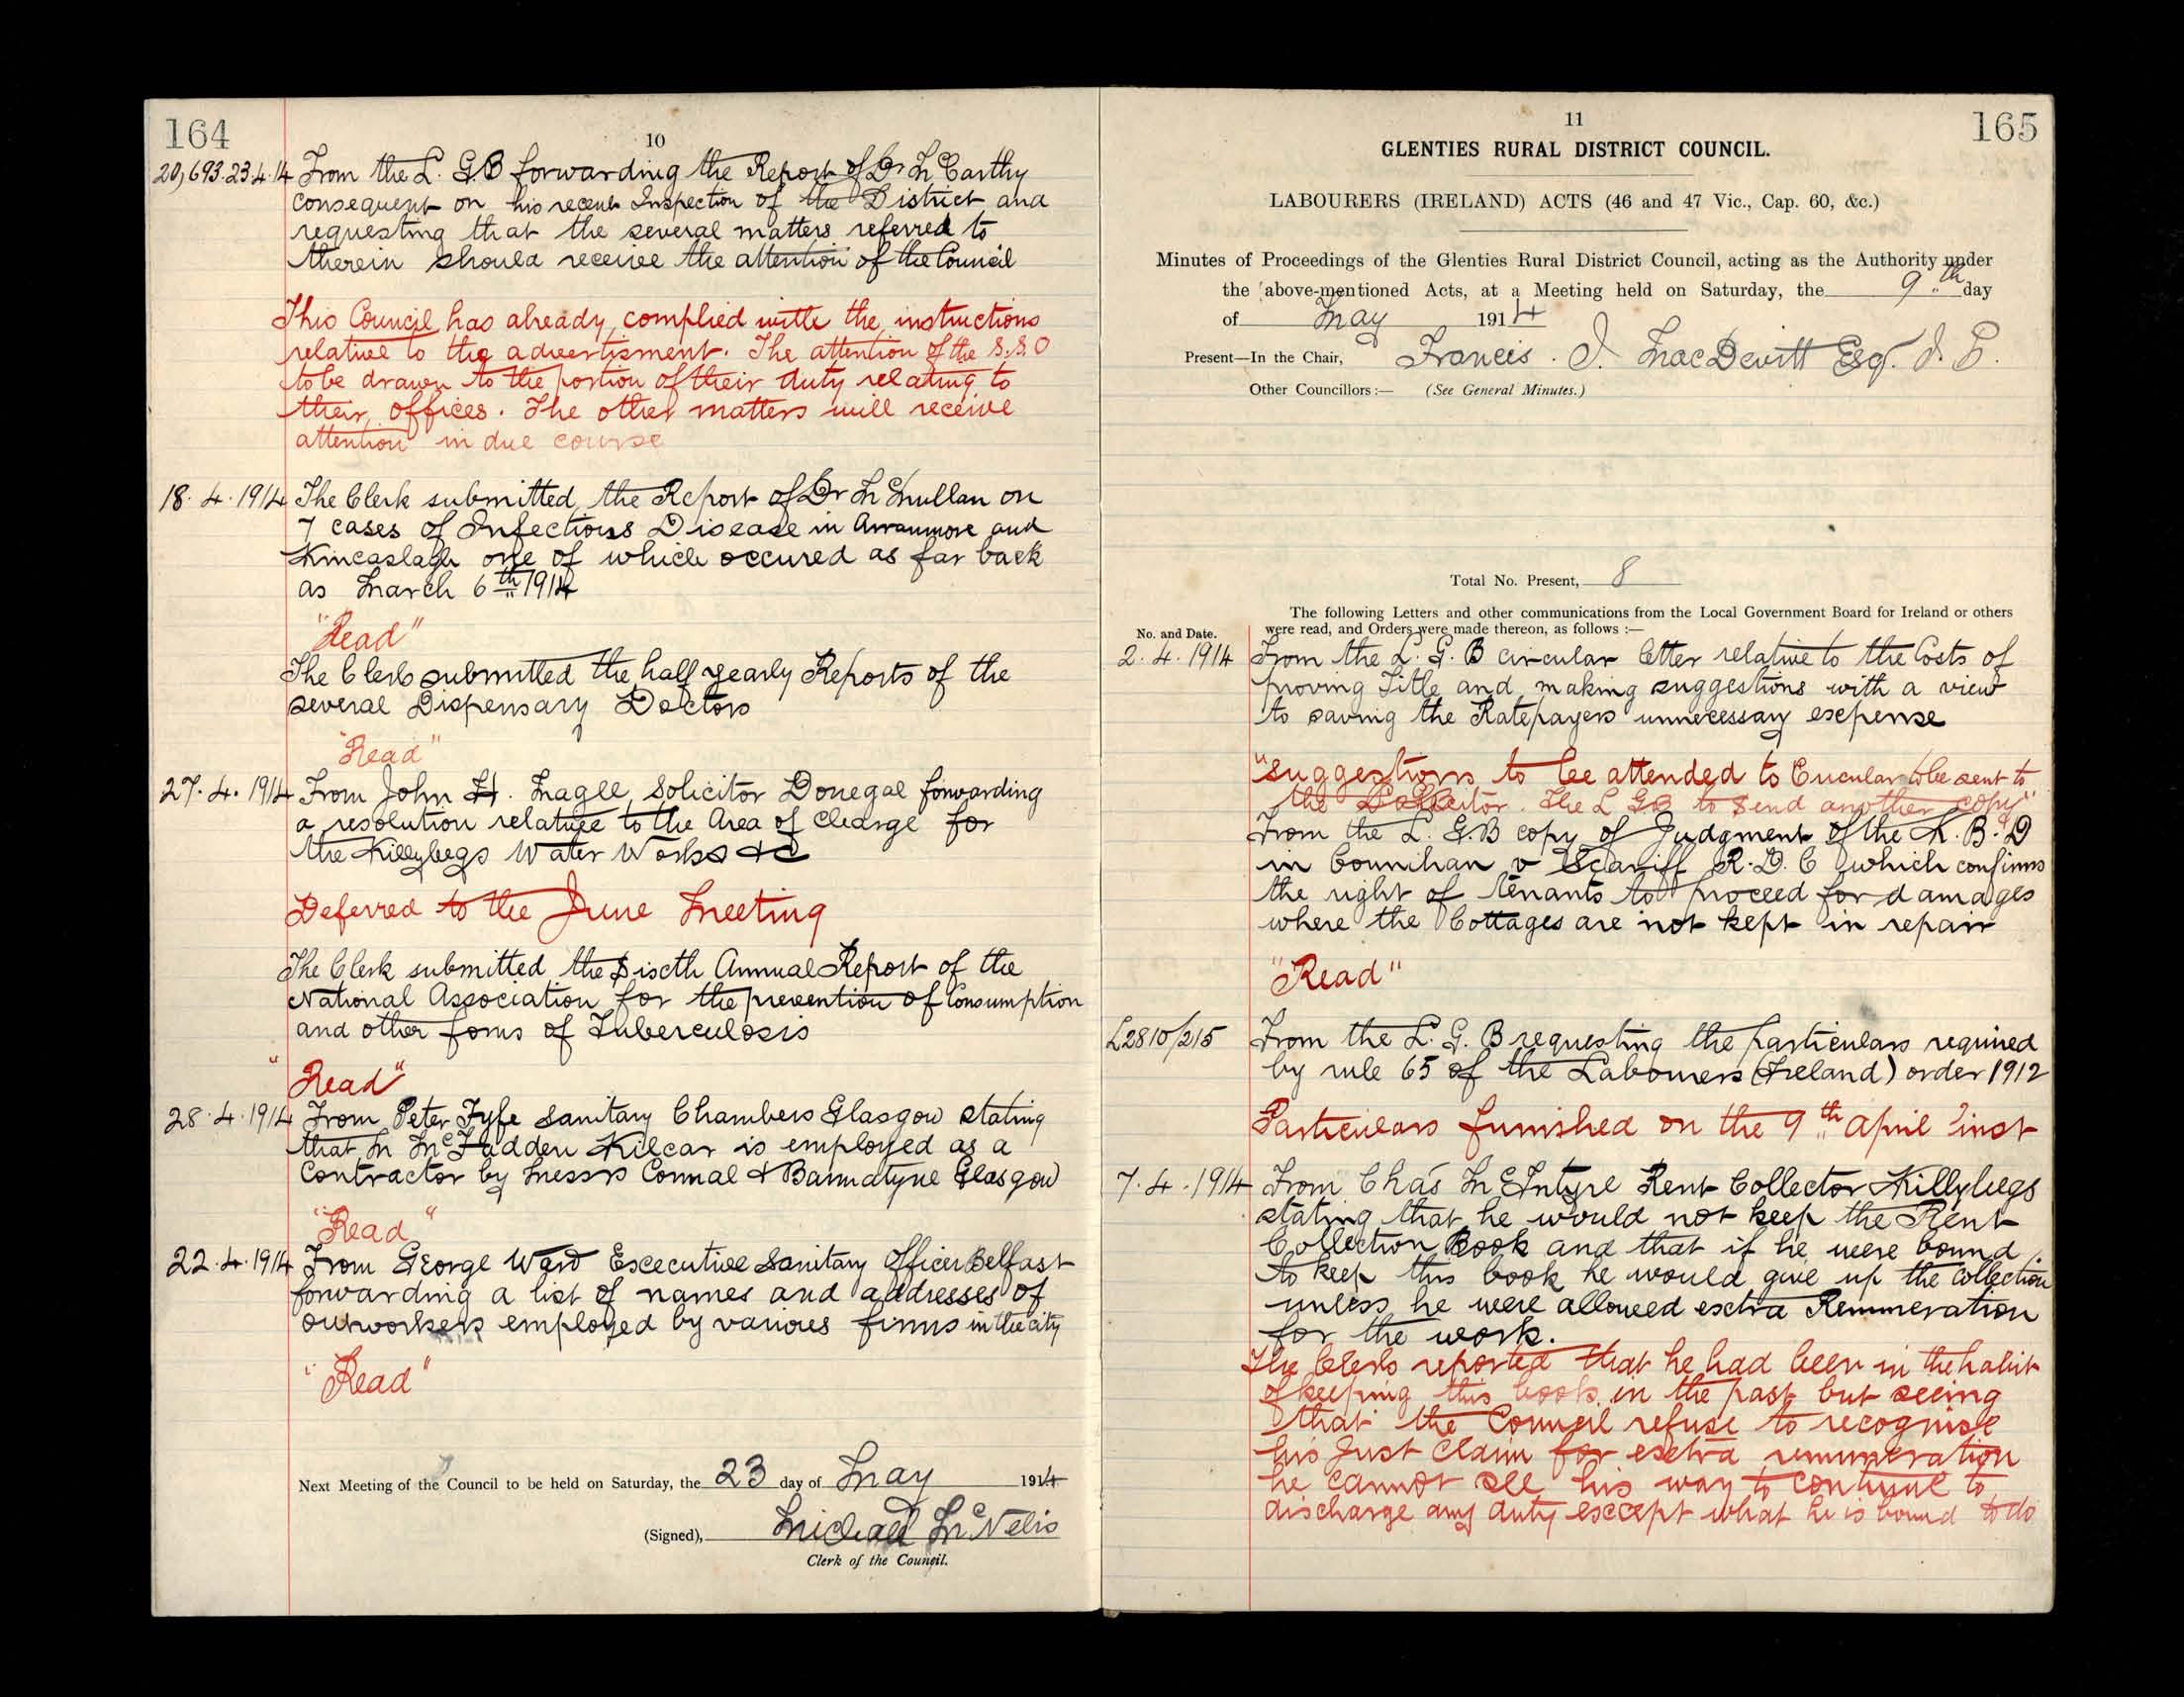 164
10
20,693.23.4.14 From the L. G. B forwarding the Report of Dr McCarthy
consequent on his recent Inspection of the District and
requesting that the several matters referred to
therein should receive the attention of the Council
This Council has already complied with the instructions
relative to the advertisment. The attention of the S.S.O
to be drawn to the portion of their duty relating to
their offices. The other matters will receive
attention in due course
18. 4. 1914 The Clerk submitted the Report of Dr McMullan on
7 cases of Infectious Disease in Arranmore and
Kincaslagh one of which occured as far back
as March 6th 1914
"Read"
The Clerk submitted the half yearly Reports of the
several Dispensary Doctors
"Read"
27. 4. 1914 From John H. Magee Solicitor Donegal forwarding
a resolution relative to the Area of Charge for
the Killybegs Water Works &c
Deferred to the June Meeting
The Clerk submitted the Sixth Annual Report of the
National Association for the prevention of Consumption
and other forms of Tuberculosis
"Read"
28. 4. 1914 From Peter Fyfe Sanitary Chambers Glasgow stating
that M McFadden Kilcar is employed as a
Contractor by Messrs Connal & Bannatyne Glasgow
"Read"
22. 4. 1914 From George Ward Executive Sanitary Officer Belfast
forwarding a list of names and addresses of
outworkers employed by various firms in the city
"Read"
Next Meeting of the Council to be held on Saturday, the 23 day of May 1914
(Signed), Michael McNelis
Clerk of the Council.
11
165
GLENTIES RURAL DISTRICT COUNCIL.
LABOURERS (IRELAND) ACTS (46 and 47 Vic., Cap. 60, &c.)
Minutes of Proceedings of the Glenties Rural District Council, acting as the Authority under
the above-mentioned Acts, at a Meeting held on Saturday, the 9th day
of May 1914
Present—In the Chair, Francis. J. MacDevitt Esq. J. P.
Other Councillors:— (See General Minutes.)
Total No. Present, 8
The following Letters and other communications from the Local Government Board for Ireland or others
No. and Date. were read, and Orders were made thereon, as follows:—
2. 4. 1914 From the L. G. B circular letter relative to the Costs of
proving Title and making suggestions with a view
to saving the Ratepayers unnecessary expense
"Suggestions to be attended to Circular to be sent to
the Solicitor. The L G B to send another copy"
From the L. G. B copy of Judgment of the K. B. D
in Counihan v Scariff R. D. C which confirms
the right of tenants to proceed for damages
where the Cottages are not kept in repair
"Read"
L2810/215 From the L. G. B requesting the particulars required
by rule 65 of the Labourers (Ireland) order 1912
Particulars furnished on the 9th April inst
7. 4. 1914 From Chas McEntyre Rent Collector Killybegs
stating that he would not keep the Rent
Collection Book and that if he were bound
to keep this book he would give up the collection
unless he were allowed extra Remuneration
for the work.
The Clerk reported that he had been in the habit
of keeping this book in the past but seeing
that the Council refuse to recognise
his just claim for extra remuneration
he cannot see his way to continue to
discharge any duty except what he is bound to do